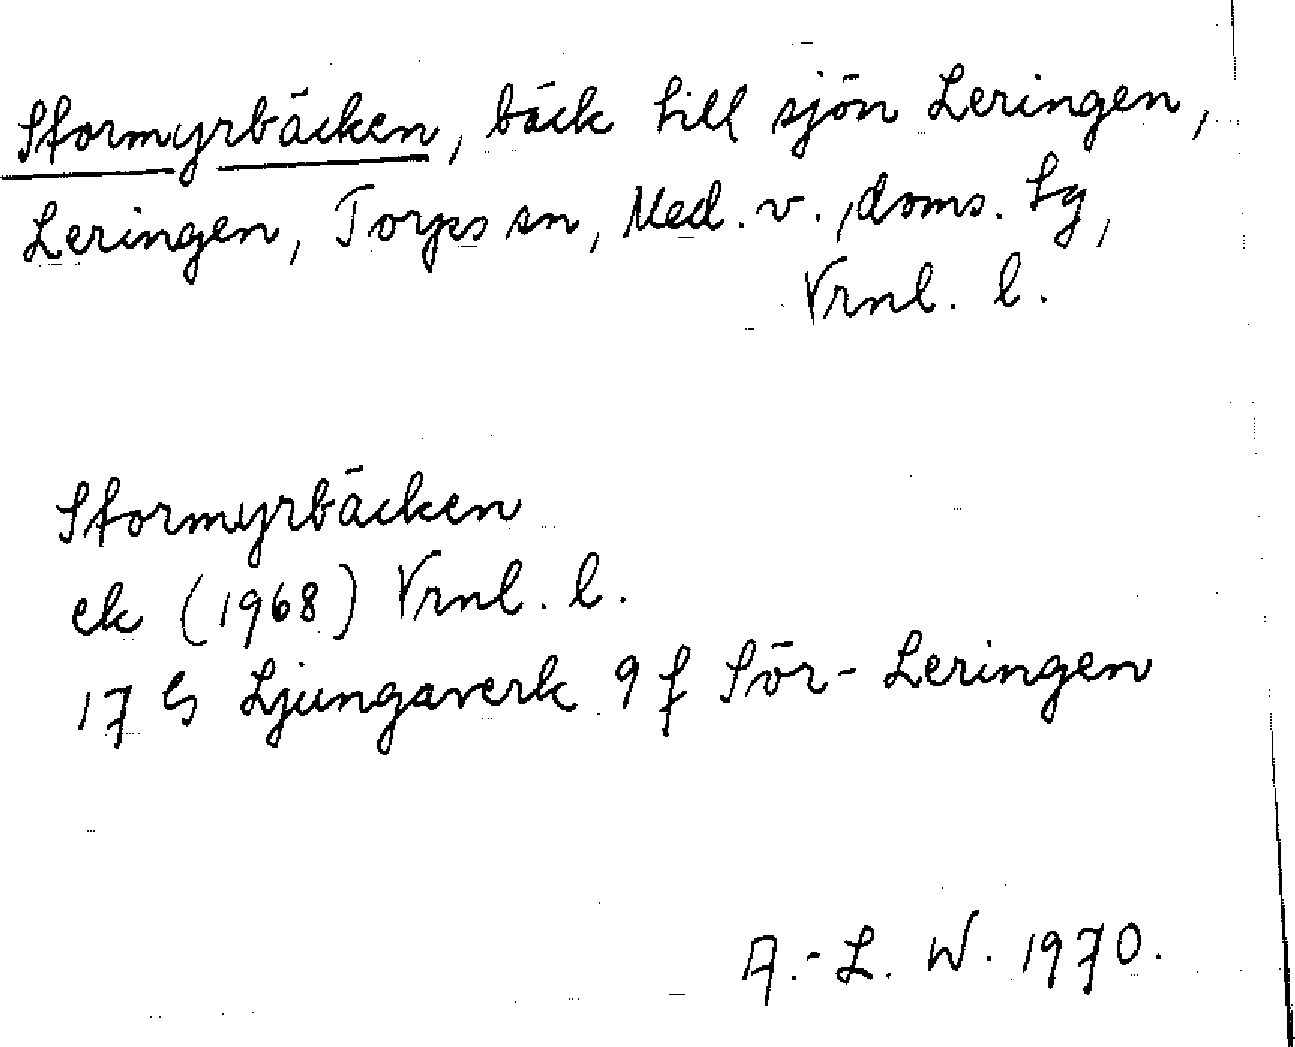 Stormyrbäcken, bäck till sjön Leringen,
Leringen, Torps sn, Med. v., doms. tg,
Vrnl. l.
Stormyrbäcken
ek (1968) Vrnl. l.
17 G Ljungaverk 9 f Sör-Leringen
A.-L. W. 1970.